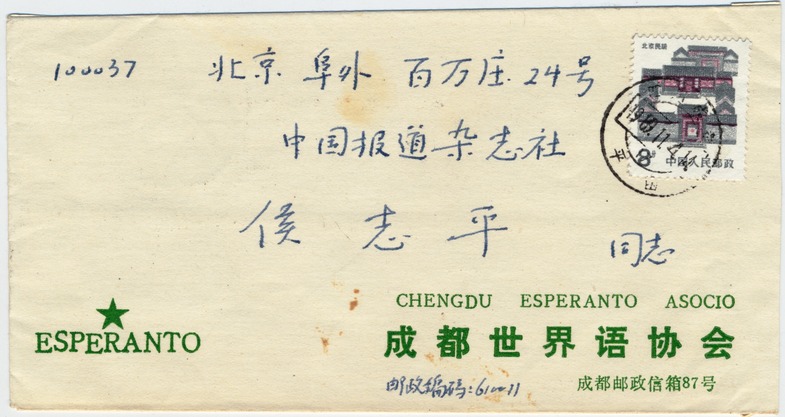 100037 北京 阜外 百万庄 24号
中国报道杂志社
侯志平 同志
北京民居
8分 中国人民邮政
1989.11.
ESPERANTO
CHENGDU ESPERANTO ASOCIO
成都世界语协会
成都邮政信箱87号
邮政编码:610011